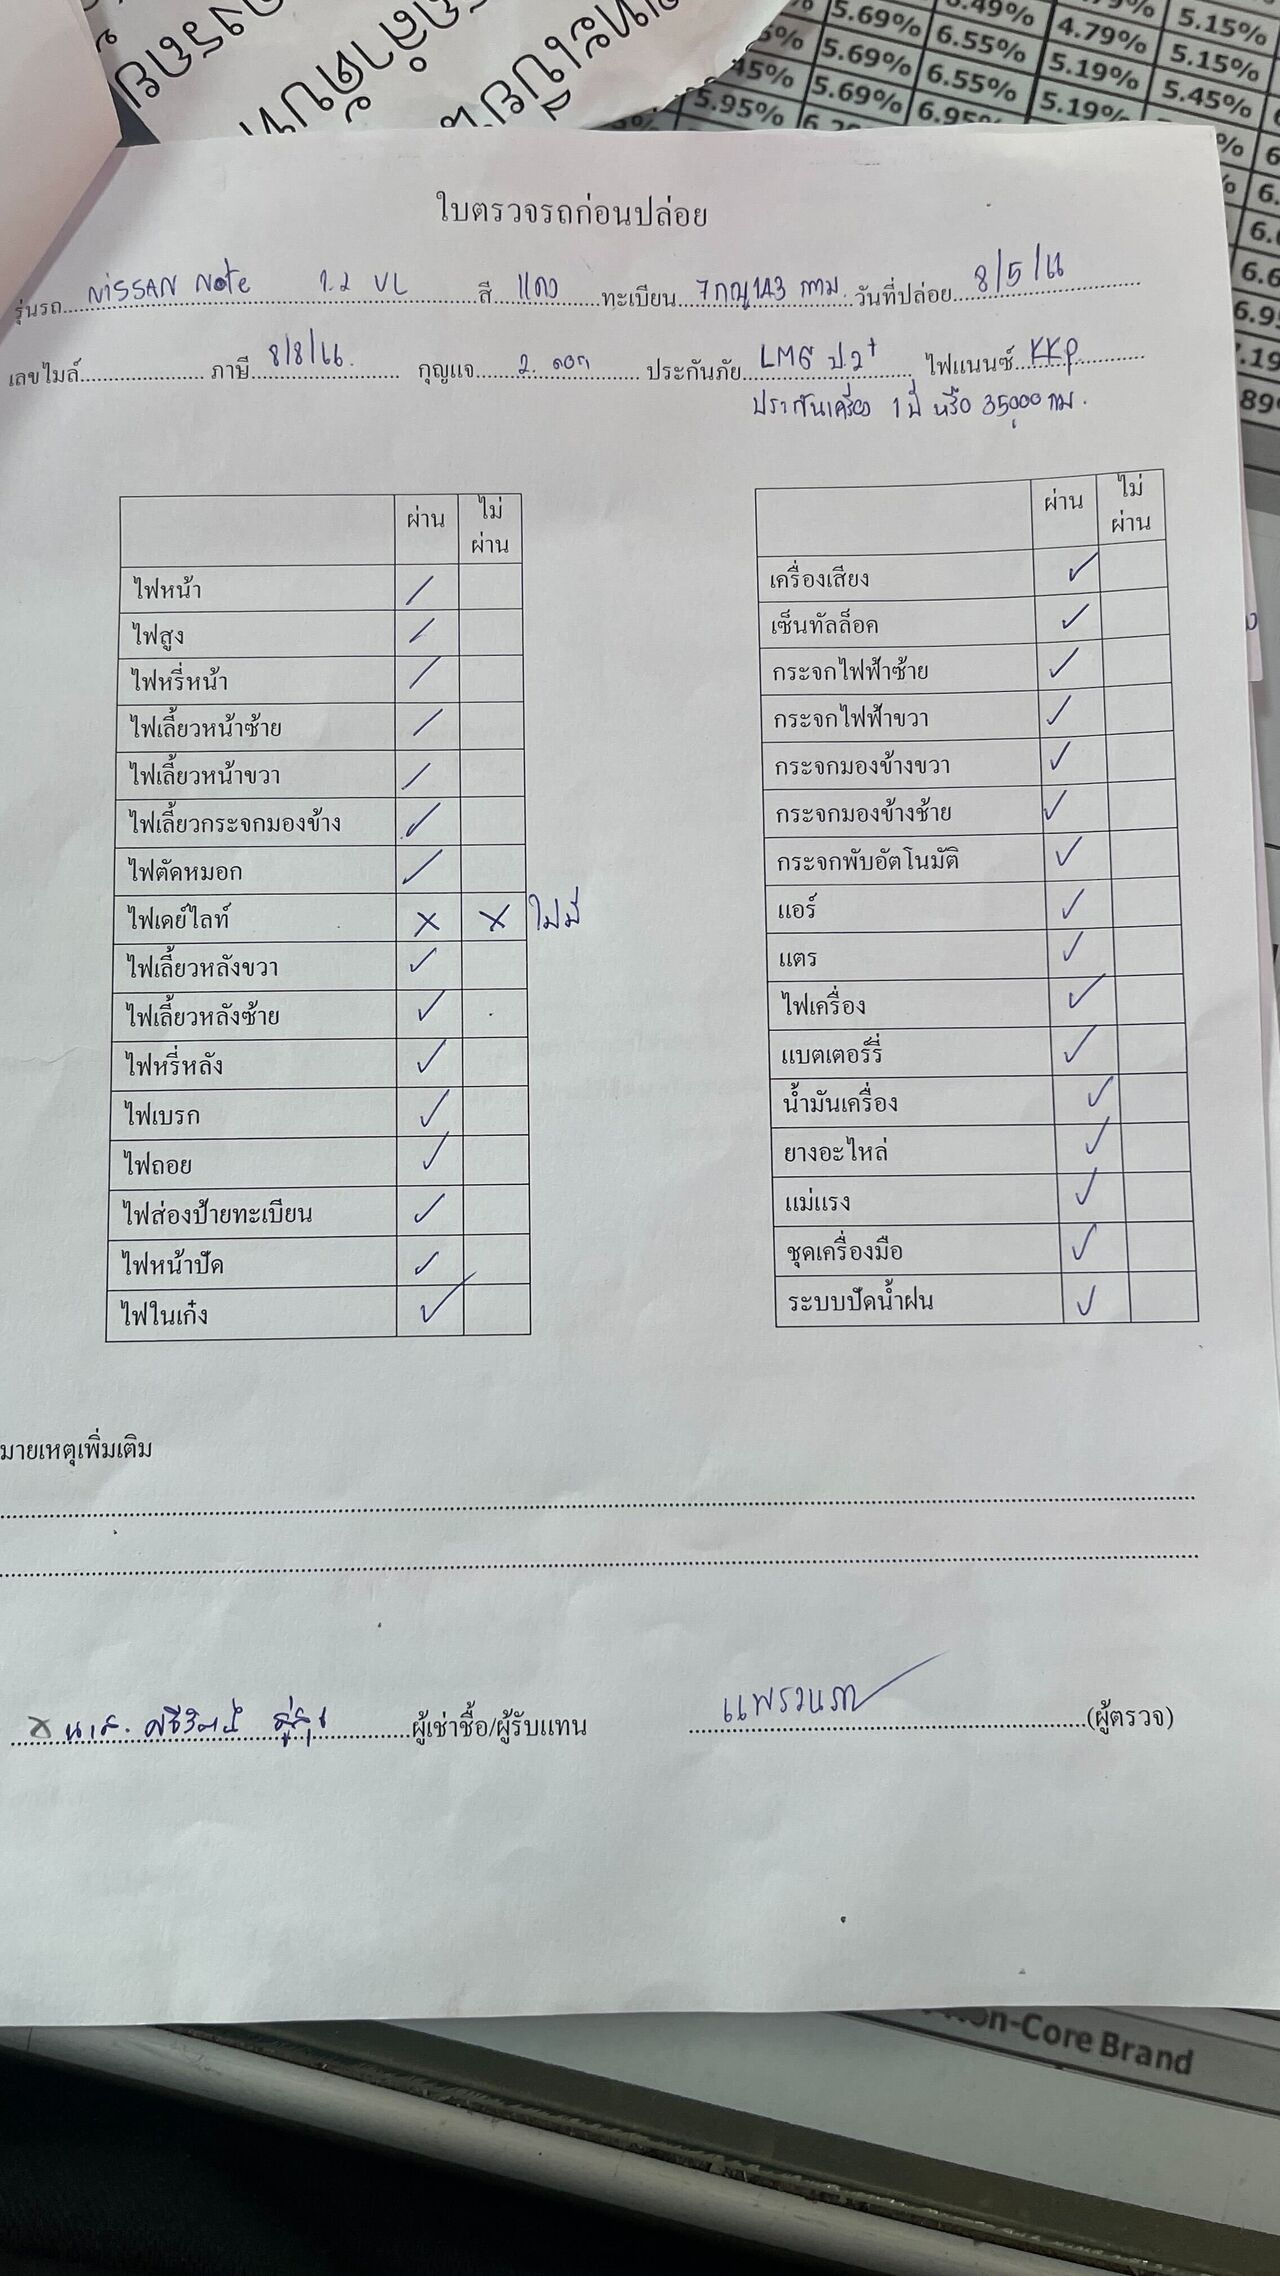 5.69% 6.49% 4.79% 5.15%
5.69% 6.55% 4.79% 5.15%
5.69% 6.55% 5.19% 5.45%
5.95% 5.19%
ใบตรวจรถก่อนปล่อย
รุ่นรถ NISSAN Note 1.2 VL สี แดง ทะเบียน 7กญ143 กทม. วันที่ปล่อย 8/5/66
เลขไมล์ ภาษี 8/8/66. กุญแจ 2 ดอก ประกันภัย LMG ป.2+ ไฟแนนซ์ KKP
ประกันเครื่อง 1 ปี หรือ 35000 กม.
ผ่าน ไม่ผ่าน
ไฟหน้า ✓
ไฟสูง ✓
ไฟหรี่หน้า ✓
ไฟเลี้ยวหน้าซ้าย ✓
ไฟเลี้ยวหน้าขวา ✓
ไฟเลี้ยวกระจกมองข้าง ✓
ไฟตัดหมอก ✓
ไฟเดย์ไลท์ X X ไม่มี
ไฟเลี้ยวหลังขวา ✓
ไฟเลี้ยวหลังซ้าย ✓
ไฟหรี่หลัง ✓
ไฟเบรก ✓
ไฟถอย ✓
ไฟส่องป้ายทะเบียน ✓
ไฟหน้าปัด ✓
ไฟในเก๋ง ✓
ผ่าน ไม่ผ่าน
เครื่องเสียง ✓
เซ็นทัลล็อค ✓
กระจกไฟฟ้าซ้าย ✓
กระจกไฟฟ้าขวา ✓
กระจกมองข้างขวา ✓
กระจกมองข้างซ้าย ✓
กระจกพับอัตโนมัติ ✓
แอร์ ✓
แตร ✓
ไฟเครื่อง ✓
แบตเตอร์รี่ ✓
น้ำมันเครื่อง ✓
ยางอะไหล่ ✓
แม่แรง ✓
ชุดเครื่องมือ ✓
ระบบปัดน้ำฝน ✓
มายเหตุเพิ่มเติม
X น.ส. ผู้เช่าซื้อ/ผู้รับแทน แพรวนภา (ผู้ตรวจ)
Non-Core Brand